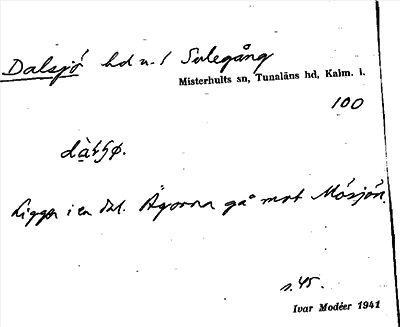 Dalsjö hd u. / Sulegång
Misterhults sn, Tunaläns hd, Kalm. l.
100
Ligger i en dal. Ägorna gå mot Mösjön.
s. 45.
Ivar Modéer 1941